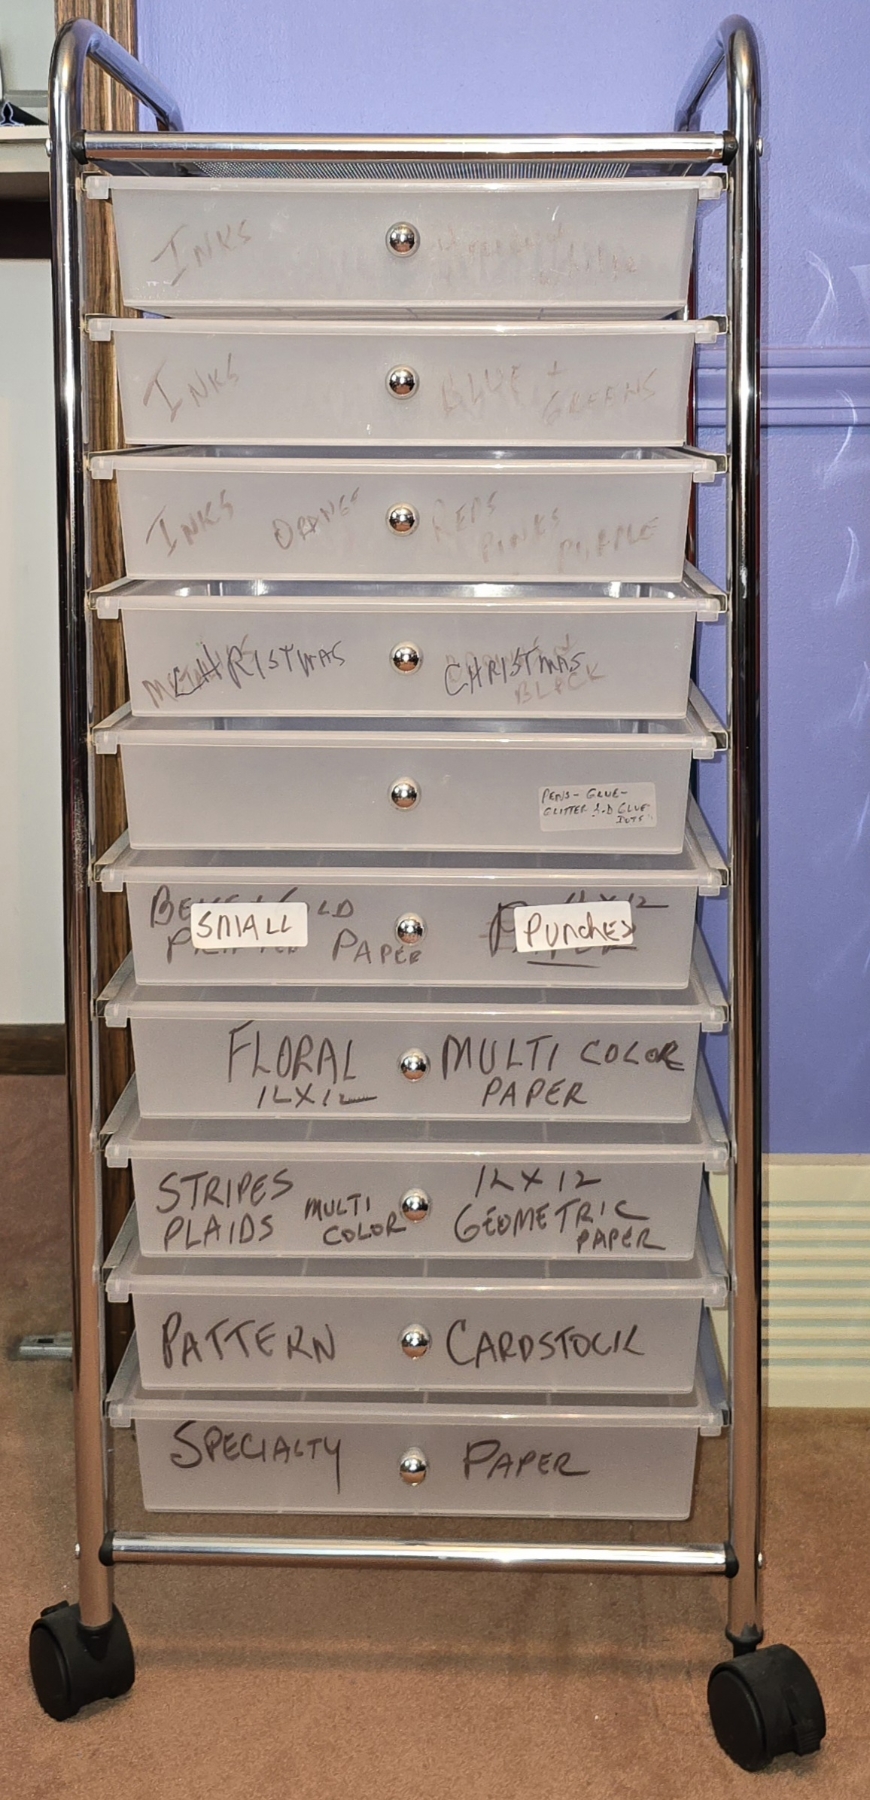 INKS
INKS BLUE +
GREENS
INKS ORANGE REDS
PINKS PURPLE
CHRISTMAS CHRISTMAS
BLACK
PENS- GLUE-
GLITTER AND GLUE
DOTS
SMALL PUNCHES
PAPER
FLORAL MULTI COLOR
12X12 PAPER
STRIPES 12X12
PLAIDS MULTI COLOR GEOMETRIC
PAPER
PATTERN CARDSTOCK
SPECIALTY PAPER